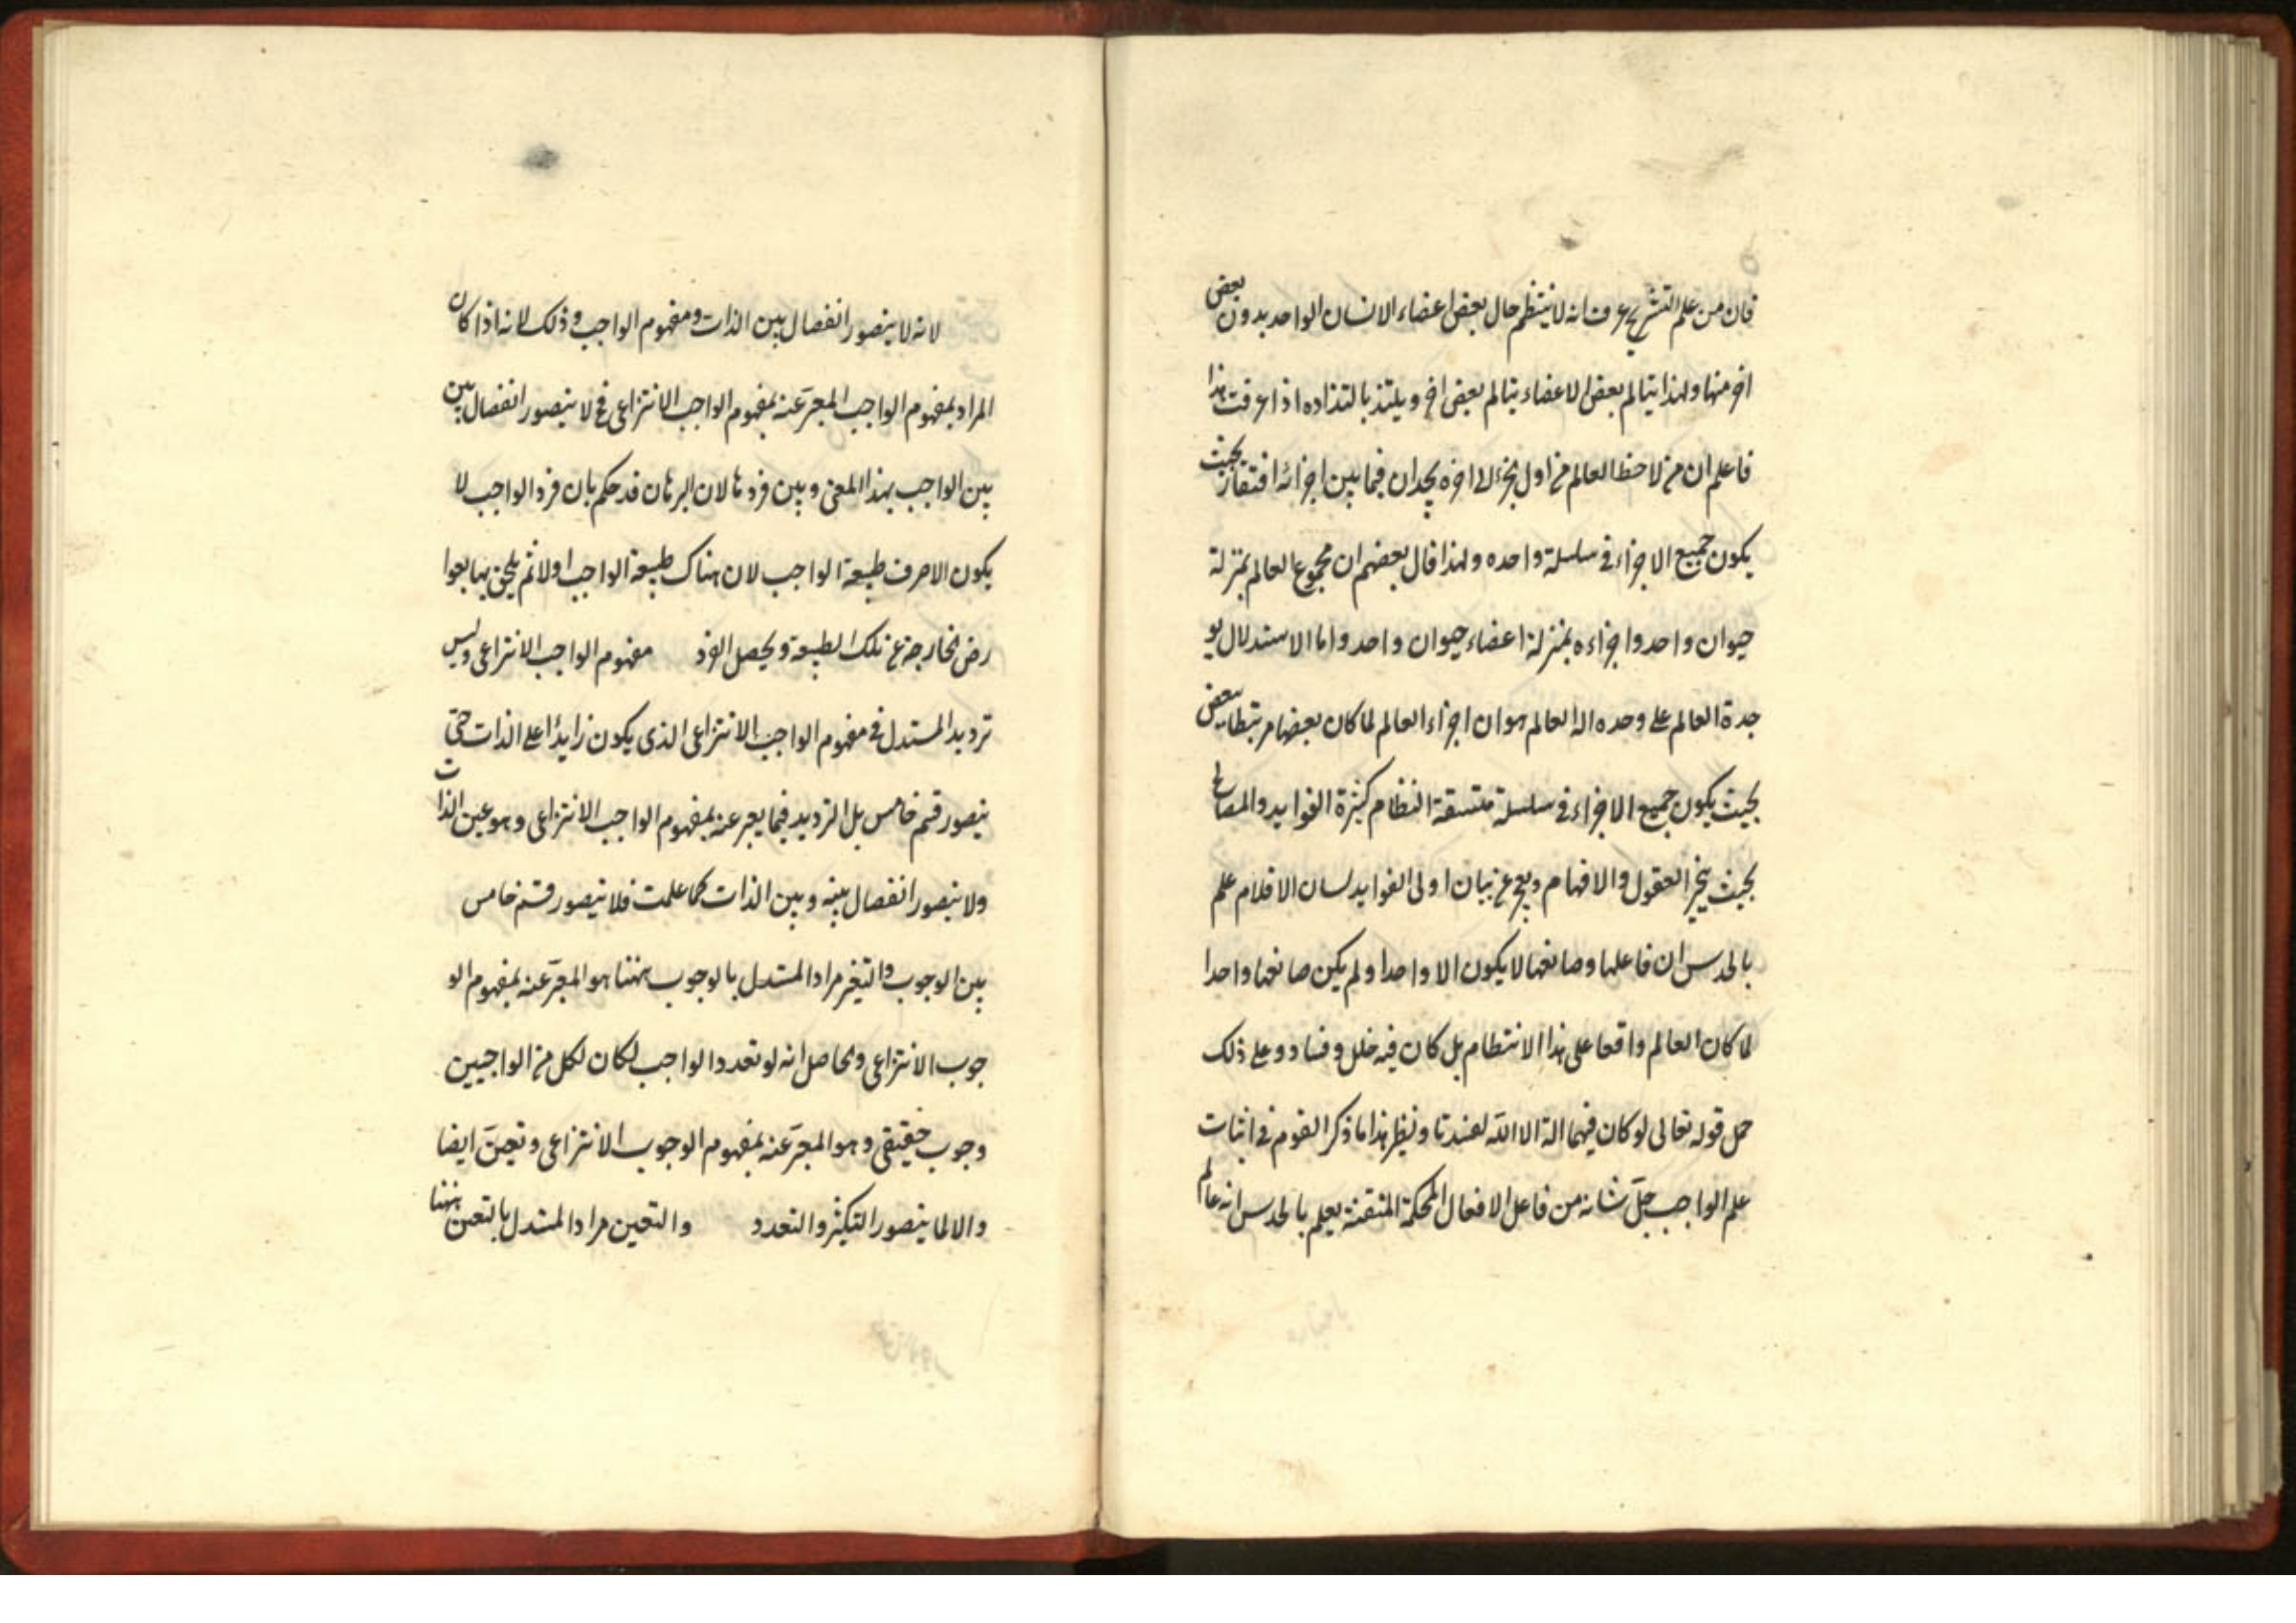 فان من علم التشريح عرف انه لا ينتظم حال بعض اعضاء الانسان الواحد بدون بعض
اخر منها ولهذا يتالم بعض الاعضاء بتالم بعض اخر ويلتذ بالتذاده اذا عرفت هذا
فاعلم ان من لاحظ العالم من اول جزء الى اخره يجد ان فيما بين اجزائه افتقار بحيث
يكون جميع الاجزاء في سلسلة واحده ولهذا قال بعضهم ان مجموع العالم بمنزلة
حيوان واحد واجزاءه بمنزلة اعضاء حيوان واحد واما الاستدلال بو
حدة العالم على وحده اله العالم هو ان اجزاء العالم لما كان بعضها مرتبطا ببعض
بحيث يكون جميع الاجزاء في سلسلة متسقة النظام كثيرة الفوايد والمصالح
بحيث يتحير العقول والافهام ويعجز عن بيان اولى الفوايد لسان الاقلام علم
بالحدس ان فاعلها وصانعها لا يكون الا واحدا ولو لم يكن صانعها واحدا
لما كان العالم واقعا على هذا الانتظام بل كان فيه خلل وفساد وعلى ذلك
حمل قوله تعالى لو كان فيهما الهة الا الله لفسدتا ونظير هذا ما ذكر القوم في اثبات
علم الواجب جلّ شانه من فاعل الافعال المحكمة المتقنة يعلم بالحدس انه عالم
لانه لا يتصور انفصال بين الذات ومفهوم الواجب وذلك لانه اذا كان
المراد بمفهوم الواجب المعبّر عنه بمفهوم الواجب الانتزاعى فح لا يتصور انفصال بين
بين الواجب بهذا المعنى وبين فرد ما لان البرهان قد حكم بان فرد الواجب لا
يكون الا صرف طبيعة الواجب لان هناك طبيعة الواجب اولا ثم يلحق بها بعوا
رض خارجة عن تلك الطبيعة ويحصل الفرد مفهوم الواجب الانتزاعى وليس
ترديد المستدل في مفهوم الواجب الانتزاعى الذى يكون زايدًا على الذات حتى
يتصور قسم خامس بل الترديد فيما يعبر عنه بمفهوم الواجب الانتزاعى وهو عين الذات
ولا يتصور انفصال بينه وبين الذات كما علمت فلا يتصور قسم خامس
بين الوجوب والتعين مراد المستدل بالوجوب ههنا هو المعبّر عنه بمفهوم الو
جوب الانتزاعى والحاصل انه لو تعدد الواجب لكان لكل من الواجبين
وجوب حقيقى وهو المعبّر عنه بمفهوم الوجوب الانتزاعى وتعينّ ايضا
والا لما يتصور التكثر والتعدد والتعين مراد المستدل بالتعين ههنا